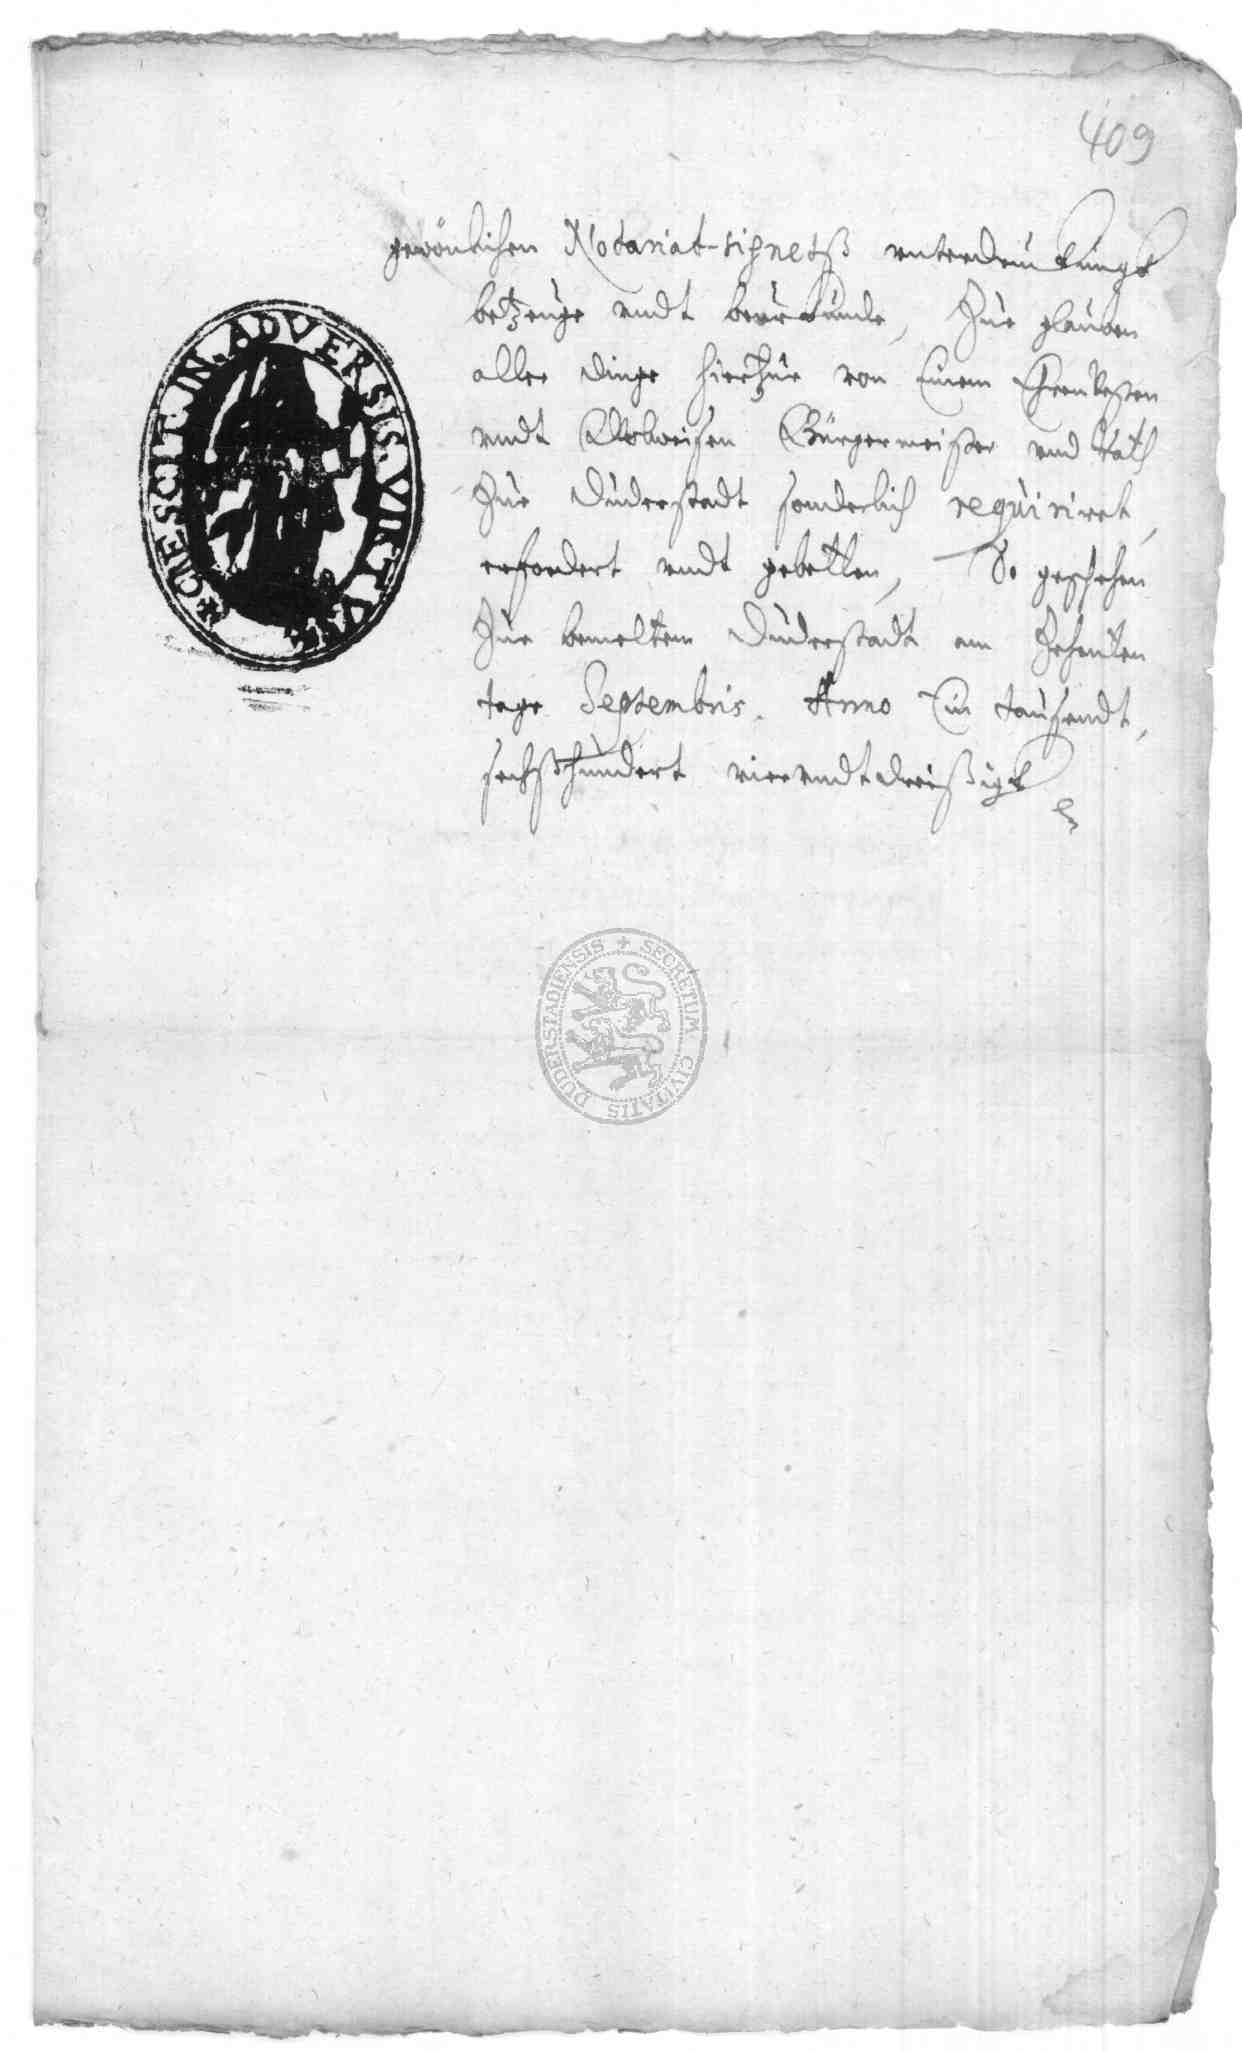 409
gewönlichen Notariat-signetß unterdrückung
betzeuge undt beurkunde, Zue glauben
aller dinge hierzue von Einem Ehrenvesten
undt Wolweisen Bürgermeister und Rath
Zue Duderstadt sonderlich requirirt,
erfordert undt gebetten, So geschehen
Zue bemeltem Duderstadt am Zehenten
tage Septembris. Anno Ein tausendt,
sechßhundert vierundtdreißigk
*CRESCIT.IN.ADVERSIS.VIRTVS
SECRETUM CIVITATIS DUDERSTADIENSIS +